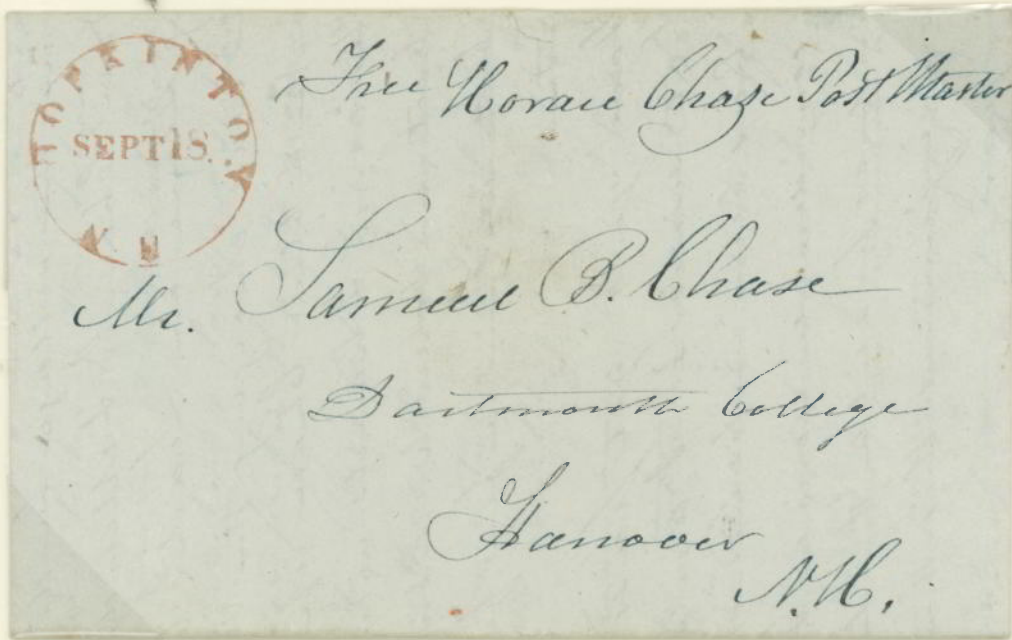 HOPKINTON.
SEPT 18.
N. H
Free Horace Chase Post Master
Mr. Samuel B. Chase
Dartmouth College
Hanover
N.H.